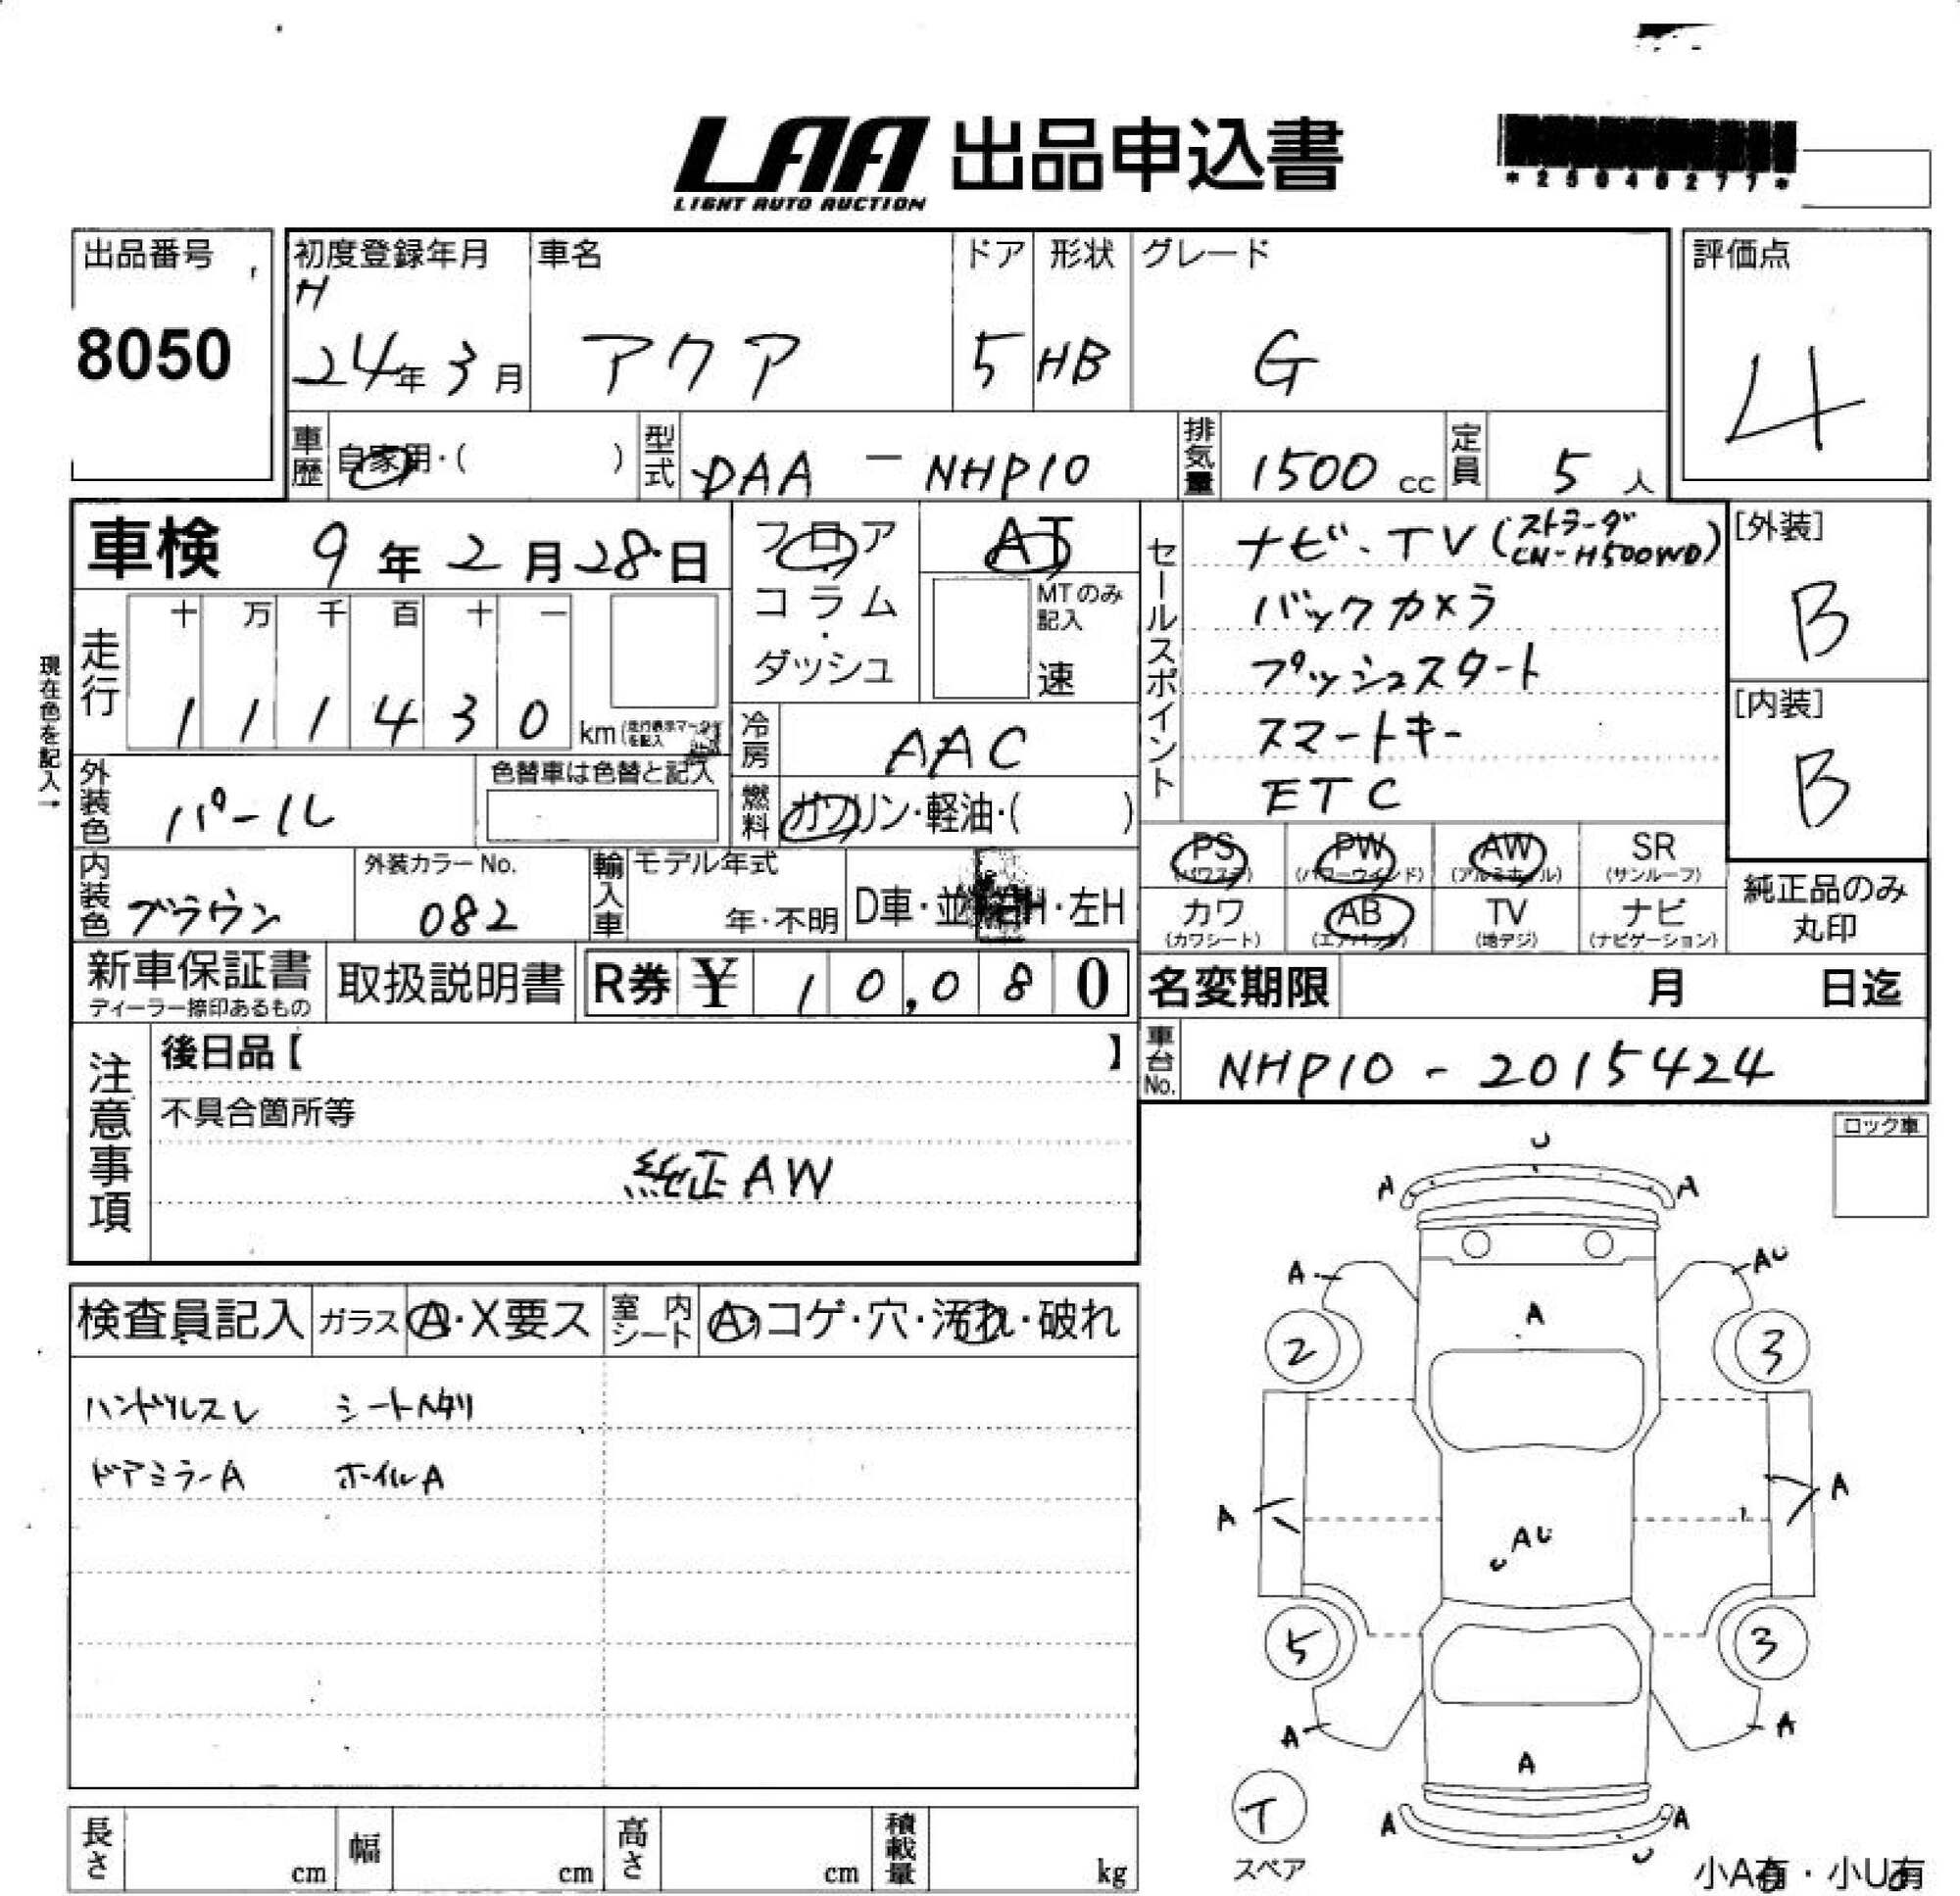 LAA 出品申込書
LIGHT AUTO AUCTION
*25040277*
出品番号
8050
初度登録年月
H
24年 3月
車名
アクア
ドア
5
形状
HB
グレード
G
評価点
4
車歴 自家用・( )
型式 DAA - NHP10
排気量 1500 cc
定員 5 人
車検 9年 2月 28日
フロア
コラム
・
ダッシュ
AT
MTのみ
記入
速
セールスポイント
ナビ・TV (ストラーダ CN-H500WD)
バックカメラ
プッシュスタート
スマートキー
ETC
[外装]
B
[内装]
B
現在色を記入→
走行
十 万 千 百 十 一
1 1 1 4 3 0 km
冷房 AAC
燃料 ガソリン・軽油・( )
外装色 パール
色替車は色替と記入
内装色 ブラウン
外装カラーNo.
082
輸入車
モデル年式
年・不明
D車・並 ・左H
PS
(パワステ)
PW
(パワーウインド)
AW
(アルミホイル)
SR
(サンルーフ)
カワ
(カワシート)
AB
(エアバッグ)
TV
(地デジ)
ナビ
(ナビゲーション)
純正品のみ
丸印
新車保証書
ディーラー捺印あるもの
取扱説明書
R券 ¥ 10,080
名変期限 月 日迄
車台No. NHP10-2015424
注意事項
後日品【 】
不具合箇所等
純正AW
ロック車
検査員記入
ガラス A・X要ス
室内シート A・コゲ・穴・汚れ・破れ
ハンドルスレ シートヘタリ
ドアミラーA ホイルA
U
A A
A AU
A
2 3
A A
AU
U
5 3
A A
A
T
スペア
A A
U
小A有・小U有
長さ cm
幅 cm
高さ cm
積載量 kg